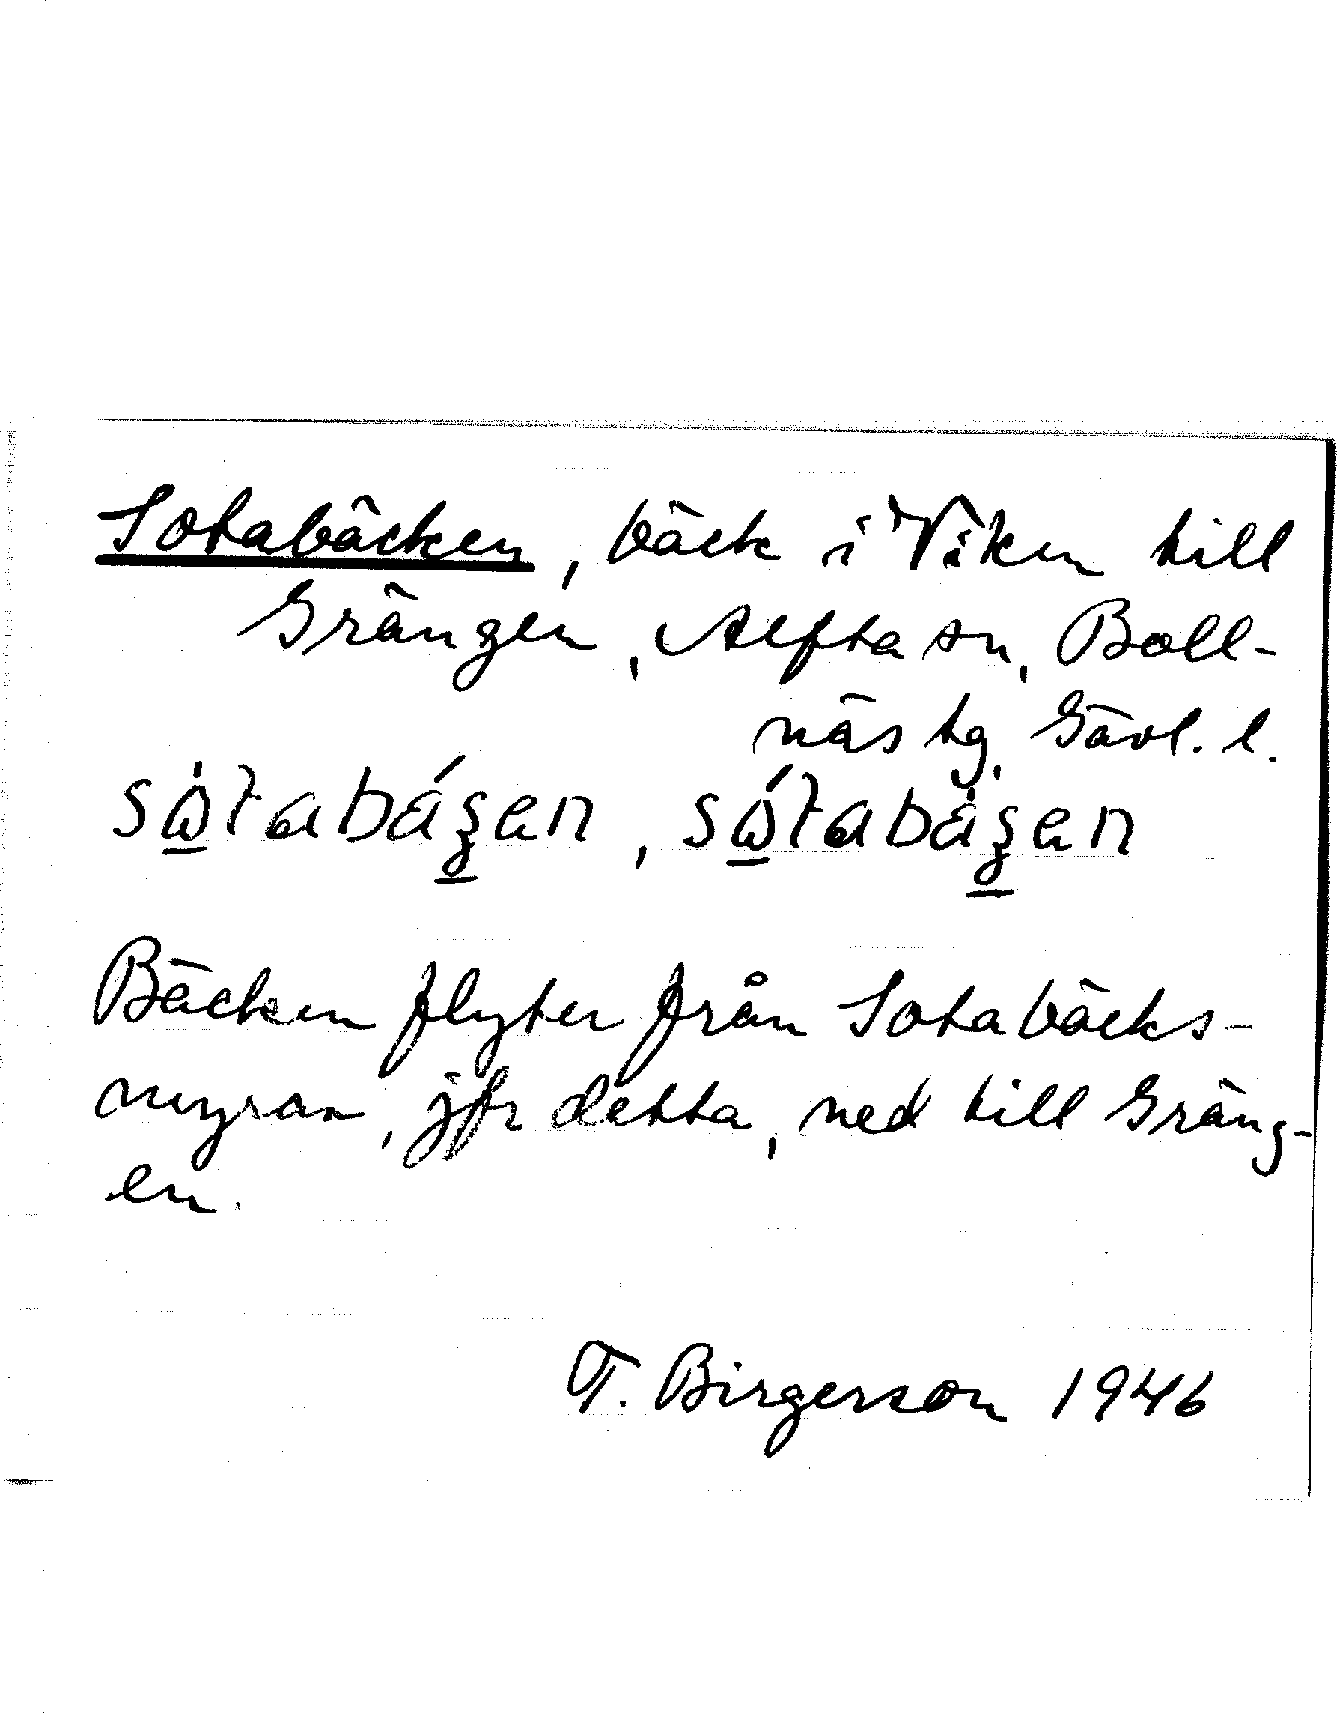 Sotabäcken, bäck i Viken till
Grängen, Alfta sn, Boll-
näs tg, Gävl. l.
Bäcken flyter från Sotabäcks-
myran, jfr detta, ned till Gräng-
en.
T. Birgerson 1946